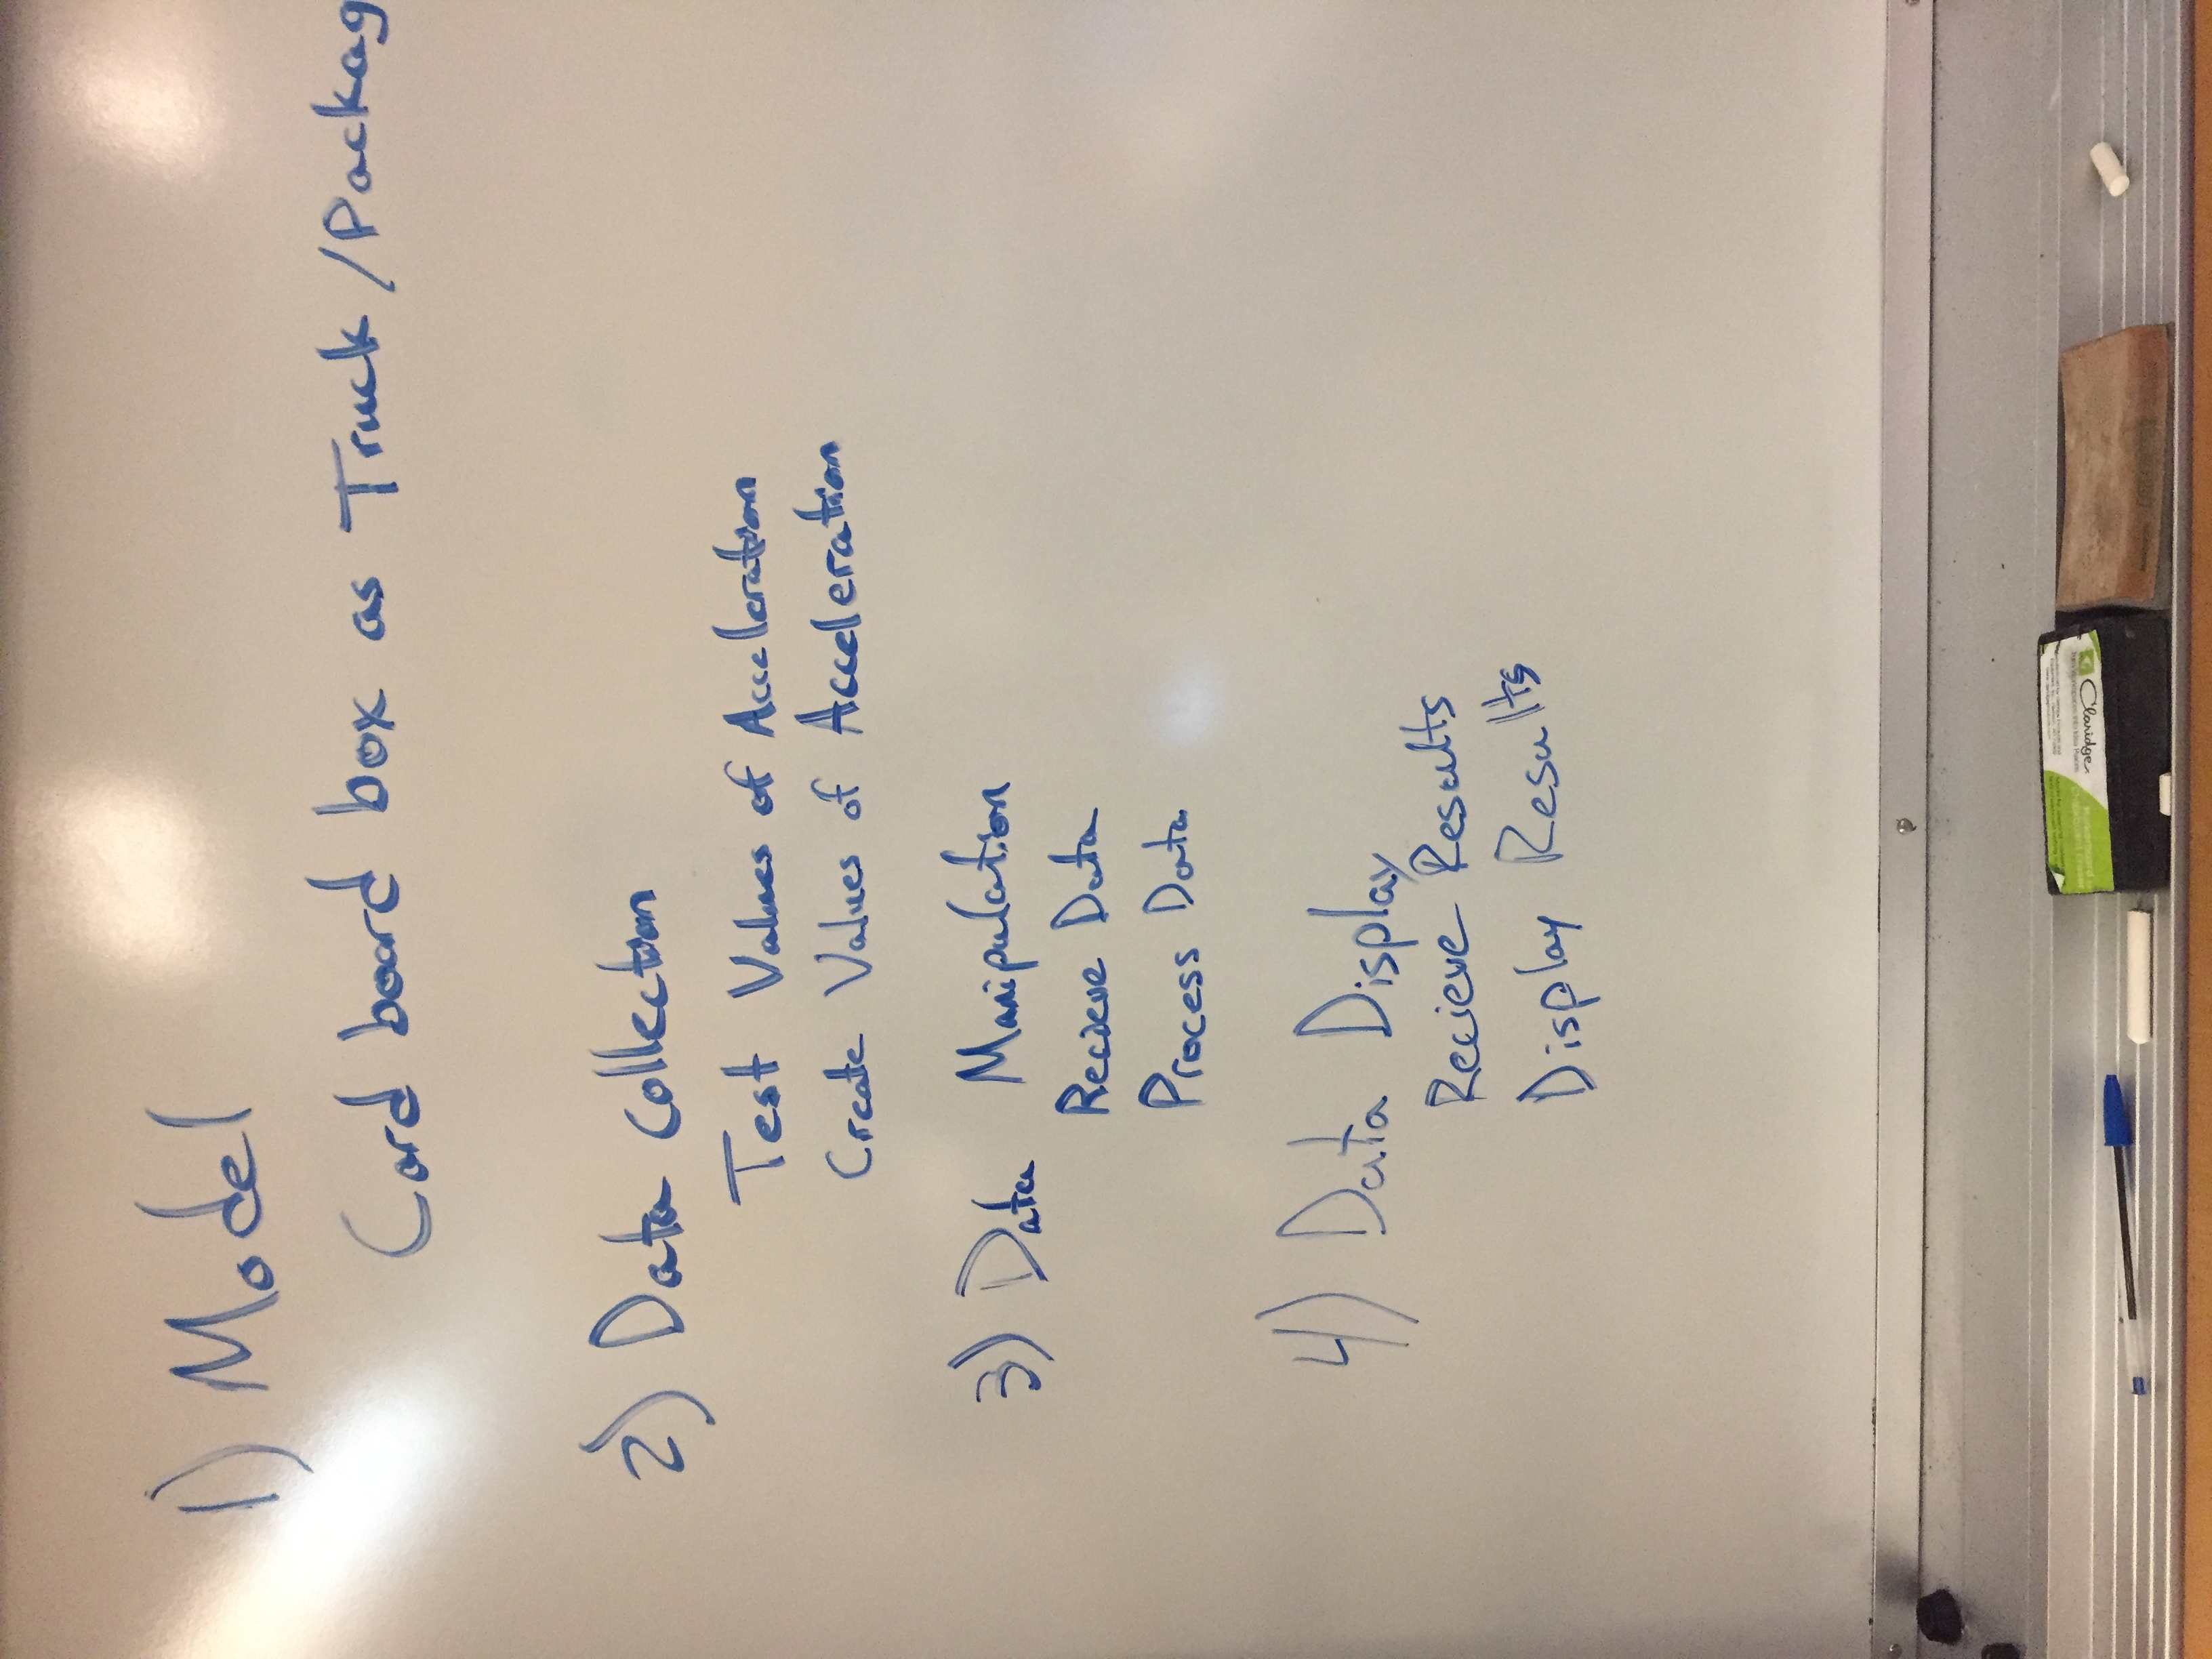 1) Model
Card board box as Truck /Packag
2) Data Collection
Test Values of Acceleration
Create Values of Acceleration
3) Data Manipulation
Recieve Data
Process Data
4) Data Display
Recieve Results
Display Results
Claridge